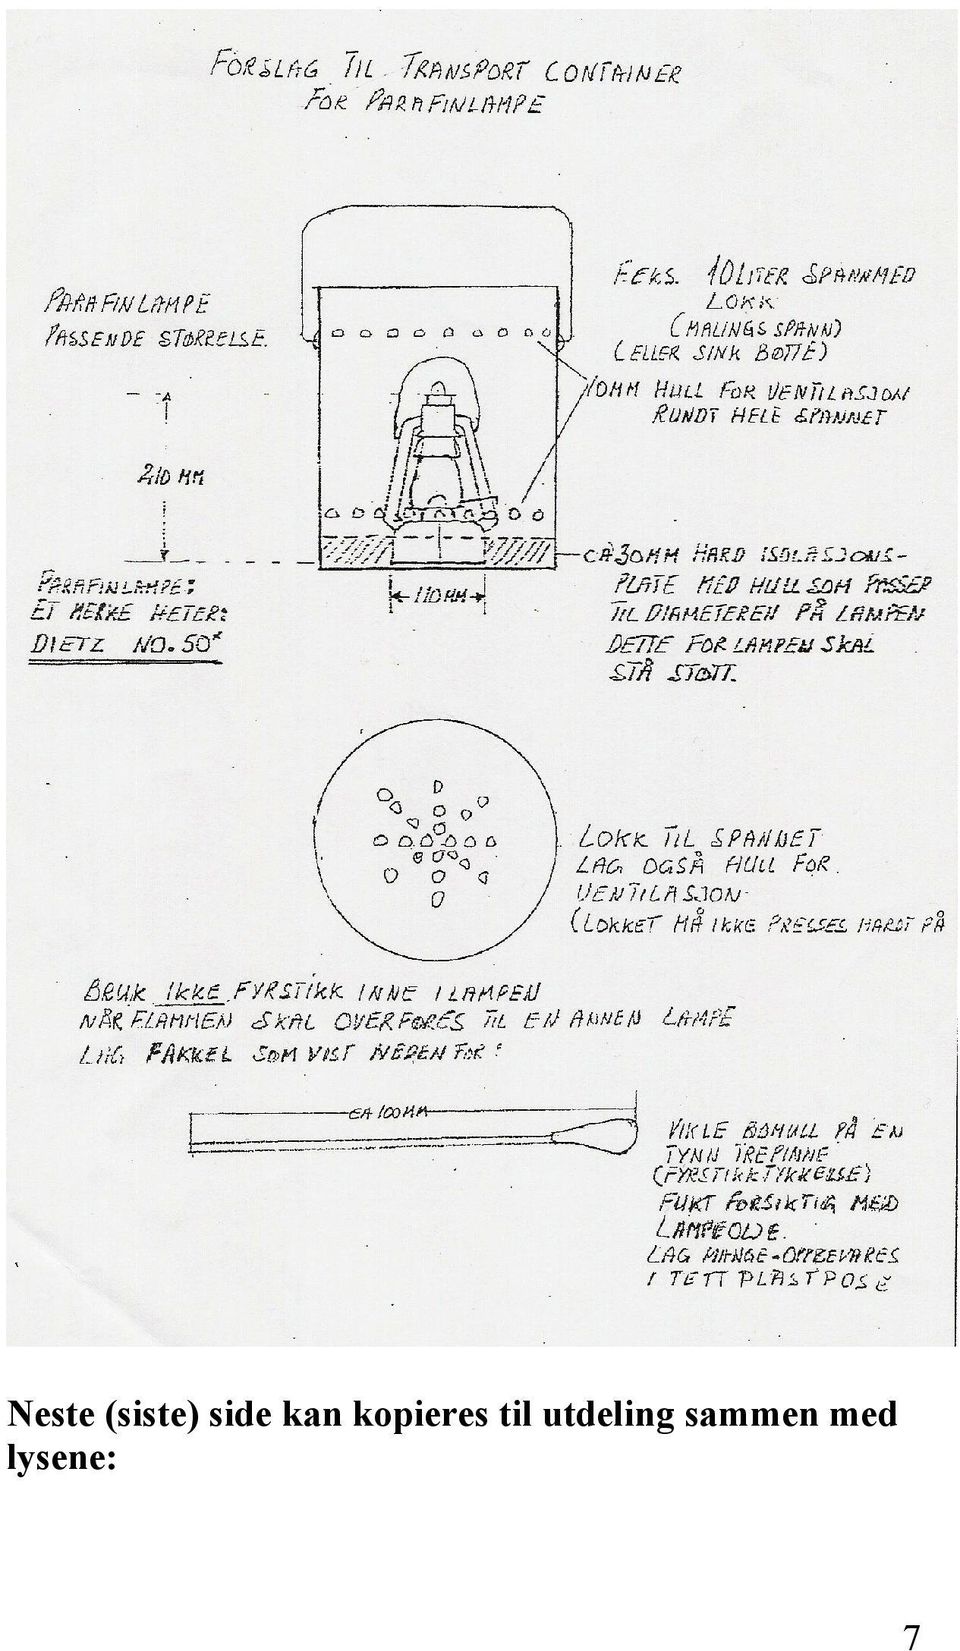 FORSLAG TIL TRANSPORT CONTAINER
FOR PARAFINLAMPE
PARAFINLAMPE
PASSENDE STØRRELSE.
210 MM
PARAFINLAMPE:
ET MERKE HETER:
DIETZ NO. 50
F.EKS. 10 LITER SPANN MED
LOKK
(MALINGS SPANN)
(ELLER SINK BØTTE)
10MM HULL FOR VENTILASJON
RUNDT HELE SPANNET
CA 30MM HARD ISOLASJONS-
PLATE MED HULL SOM PASSER
TIL DIAMETEREN PÅ LAMPEN
DETTE FOR LAMPEN SKAL
STÅ STØTT.
110 MM
LOKK TIL SPANNET
LAG OGSÅ HULL FOR
VENTILASJON
(LOKKET MÅ IKKE PRESSES HARDT PÅ
BRUK IKKE FYRSTIKK INNE I LAMPEN
NÅR FLAMMEN SKAL OVERFØRES TIL EN ANNEN LAMPE
LAG FAKKEL SOM VIST NEDENFOR:
CA 100MM
VIKLE BOMULL PÅ EN
TYNN TREPINNE
(FYRSTIKKTYKKELSE)
FUKT FORSIKTIG MED
LAMPEOLJE.
LAG MANGE - OPPBEVARES
I TETT PLASTPOSE
Neste (siste) side kan kopieres til utdeling sammen med
lysene:
7